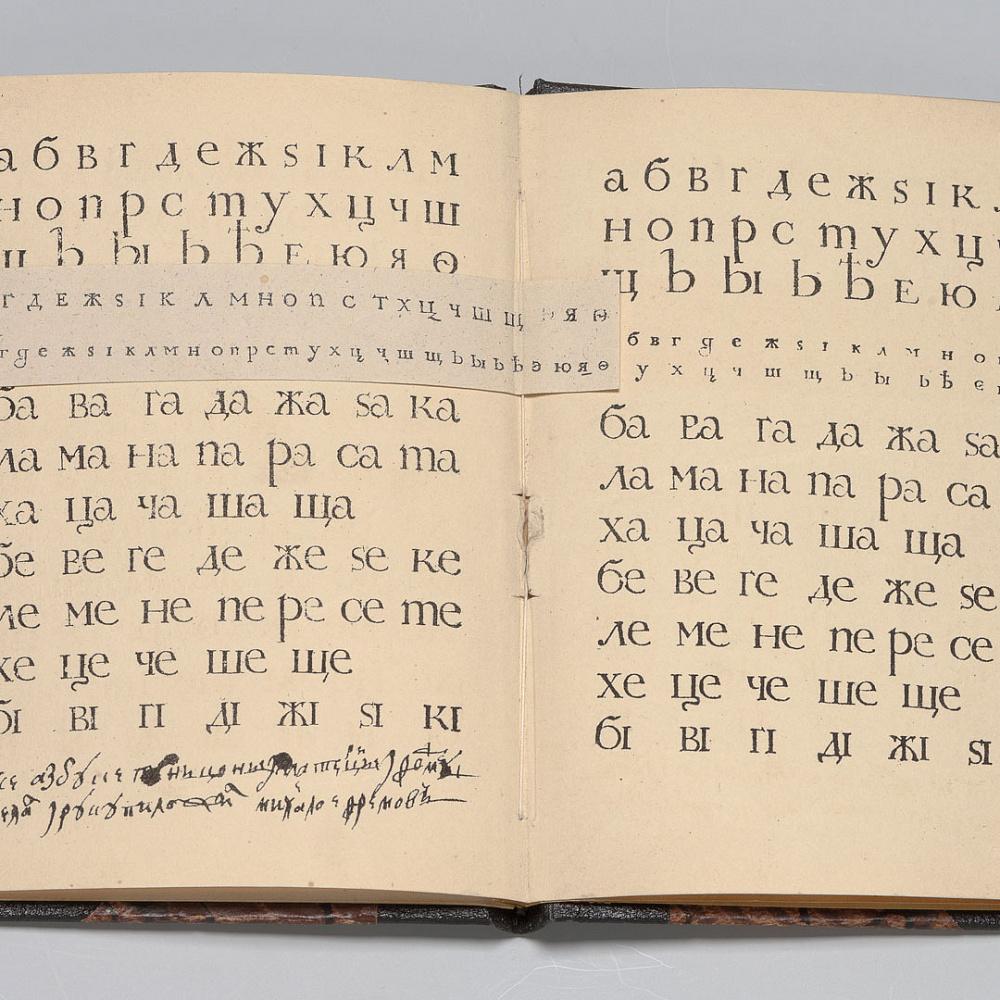 а б в г д е ж ѕ і к л м
н о п р с т у х ц ч ш
щ ъ ы ь ѣ е ю я ѳ
г д е ж ѕ і к л м н о п с т х ц ч ш щ ь я ѳ
г д е ж ѕ і к л м н о п р с т у х ц ч ш щ ъ ы ь ѣ э ю я ѳ
ба ва га да жа ѕа ка
ла ма на па ра са та
ха ца ча ша ща
бе ве ге де же ѕе ке
ле ме не пе ре се те
хе це че ше ще
бі ві гі ді жі ѕі кі
а б в г д е ж ѕ і к
н о п р с т у х ц
щ ъ ы ь ѣ е ю
б в г д е ж ѕ і к л м н о
у х ц ч ш щ ъ ы ь ѣ є
ба ва га да жа ѕа
ла ма на па ра са
ха ца ча ша ща
бе ве ге де же ѕе
ле ме не пе ре се
хе це че ше ще
бі ві гі ді жі ѕі